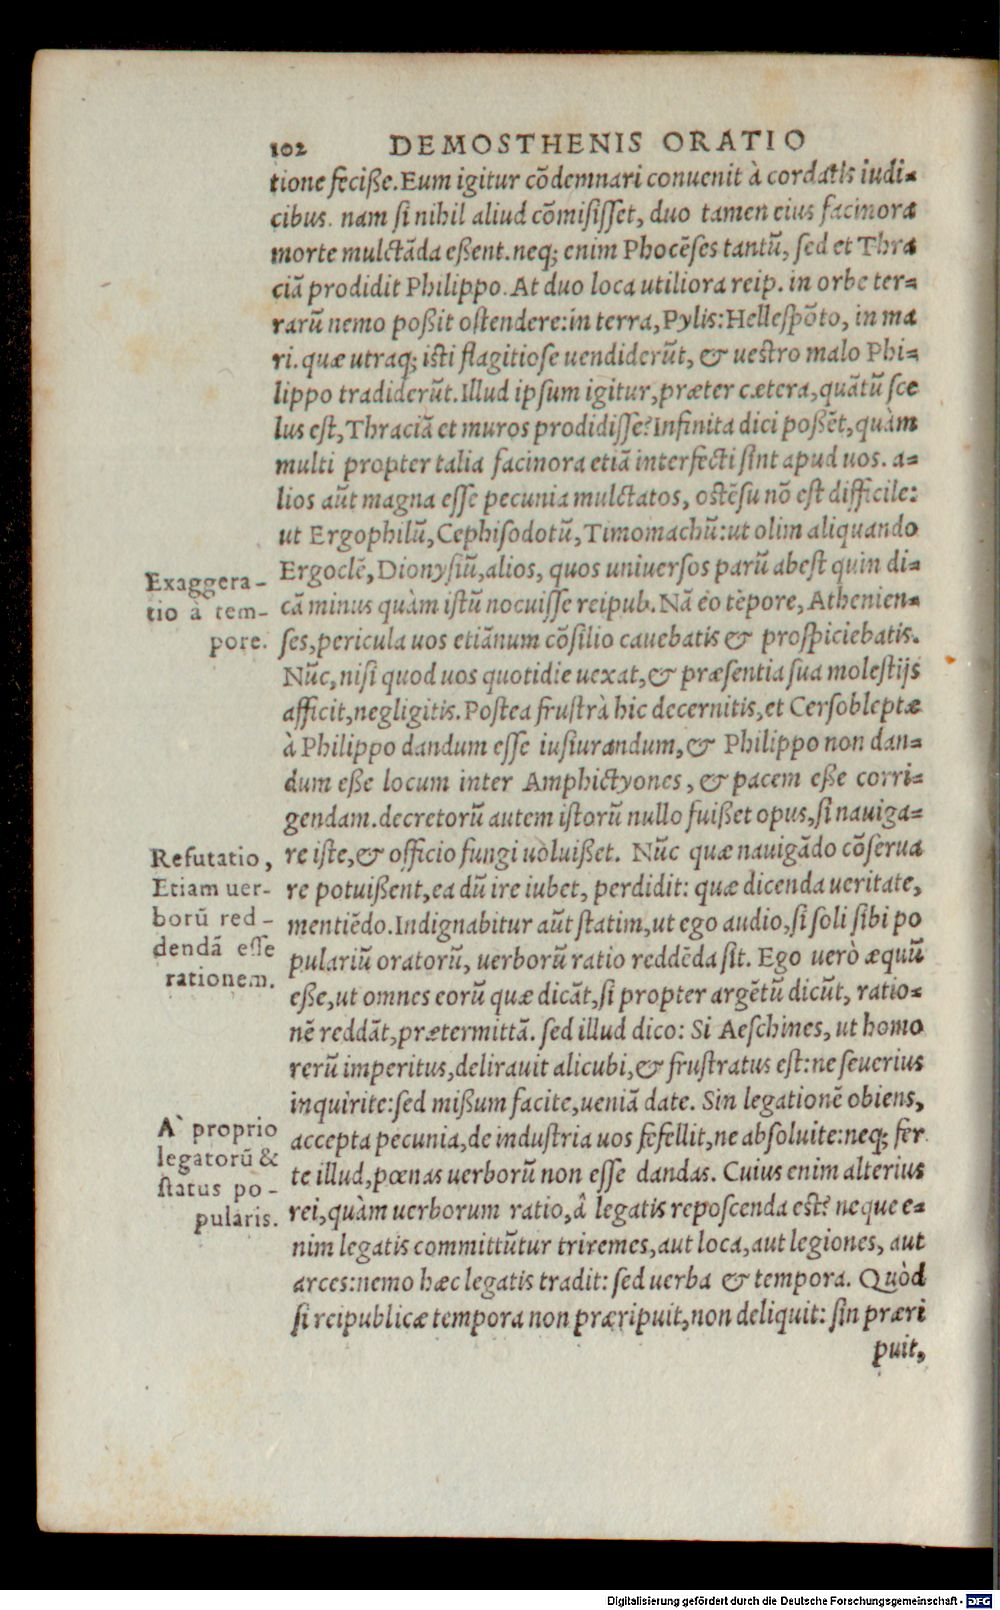 102 DEMOSTHENIS ORATIO
tione feciße. Eum igitur cõdemnari conuenit à cordatis iudi-
cibus. nam si nihil aliud cõmisisset, duo tamen eius facinora
morte mulctãda eßent. neq; enim Phocẽses tantũ, sed et Thra
ciã prodidit Philippo. At duo loca utiliora reip. in orbe ter-
rarũ nemo poßit ostendere: in terra, Pylis: Hellespõto, in ma
ri. quæ utraq; isti flagitiose uendiderũt, & uestro malo Phi-
lippo tradiderũt. Illud ipsum igitur, præter cætera, quãtũ sce
lus est, Thraciã et muros prodidisse? Infinita dici poßẽt, quàm
multi propter talia facinora etiã interfecti sint apud uos. a-
lios aũt magna esse pecunia mulctatos, ostẽsu nõ est difficile:
ut Ergophilũ, Cephisodotũ, Timomachũ: ut olim aliquando
Ergoclẽ, Dionysiũ, alios, quos uniuersos parũ abest quin di-
cã minus quàm istũ nocuisse reipub. Nã eo tẽpore, Athenien-
ses, pericula uos etiãnum cõsilio cauebatis & prospiciebatis.
Nũc, nisi quod uos quotidie uexat, & præsentia sua molestijs
afficit, negligitis. Postea frustrà hic decernitis, et Cersobleptæ
à Philippo dandum esse iusiurandum, & Philippo non dan-
dum eße locum inter Amphictyones, & pacem eße corri-
gendam. decretorũ autem istorũ nullo fuißet opus, si nauiga-
re iste, & officio fungi uoluißet. Nũc quæ nauigãdo cõserua
re potuißent, ea dũ ire iubet, perdidit: quæ dicenda ueritate,
mentiẽdo. Indignabitur aũt statim, ut ego audio, si soli sibi po
pulariũ oratorũ, uerborũ ratio reddẽda sit. Ego uerò æquũ
eße, ut omnes eorũ quæ dicãt, si propter argẽtũ dicũt, ratio-
nẽ reddãt, prætermittã. sed illud dico: Si Aeschines, ut homo
rerũ imperitus, delirauit alicubi, & frustratus est: ne seuerius
inquirite: sed mißum facite, ueniã date. Sin legationẽ obiens,
accepta pecunia, de industria uos fefellit, ne absoluite: neq; fer
te illud, pœnas uerborũ non esse dandas. Cuius enim alterius
rei, quàm uerborum ratio, â legatis reposcenda est? neque e-
nim legatis committũtur triremes, aut loca, aut legiones, aut
arces: nemo hæc legatis tradit: sed uerba & tempora. Quòd
si reipublicæ tempora non præripuit, non deliquit: sin præri
puit,
Exaggera-
tio à tem-
pore.
Refutatio,
Etiam uer-
borũ red-
dendã esse
rationem.
A' proprio
legatorũ &
status po-
pularis.
Digitalisierung gefördert durch die Deutsche Forschungsgemeinschaft - DFG